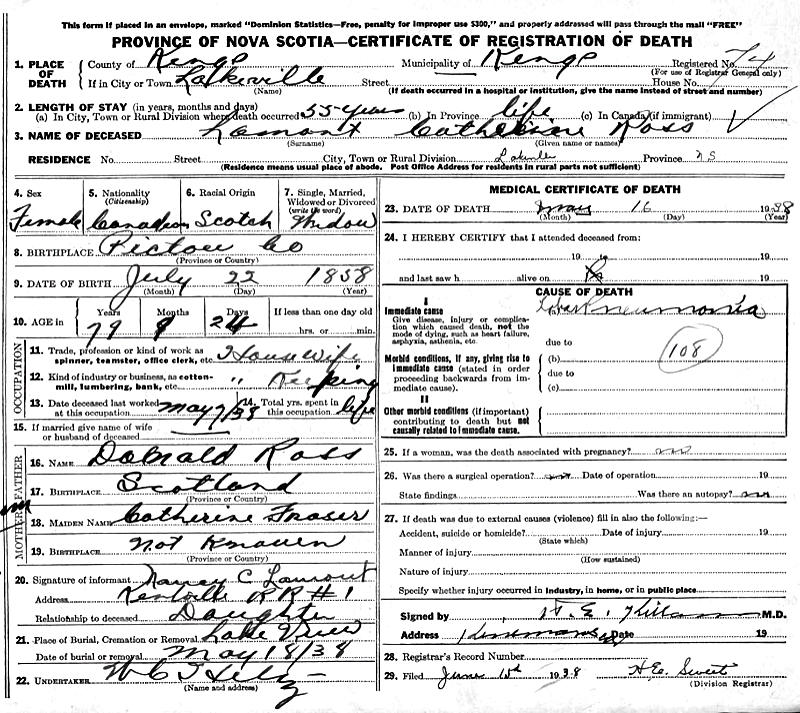 This form if placed in an envelope, marked "Dominion Statistics—Free, penalty for improper use $300," and properly addressed will pass through the mail "FREE"
PROVINCE OF NOVA SCOTIA—CERTIFICATE OF REGISTRATION OF DEATH
1. PLACE OF DEATH
County of Kings Municipality of Kings Registered No. 74
(For use of Registrar General only)
If in City or Town Street House No.
(Name) (If death occurred in a hospital or institution, give the name instead of street and number)
2. LENGTH OF STAY (in years, months and days)
(a) In City, Town or Rural Division where death occurred 55 years (b) In Province life (c) In Canada (if immigrant)
3. NAME OF DECEASED Lamont Catherine Ross
(Surname) (Given name or names)
RESIDENCE No. Street City, Town or Rural Division Province NS
(Residence means usual place of abode. Post Office Address for residents in rural parts not sufficient)
4. Sex Female
5. Nationality (Citizenship) Canadian
6. Racial Origin Scotch
7. Single, Married, Widowed or Divorced (write the word) Widow
8. BIRTHPLACE Pictou Co
(Province or Country)
9. DATE OF BIRTH July 22 1858
(Month) (Day) (Year)
10. AGE in Years Months Days If less than one day old
79 9 24 hrs. or min.
OCCUPATION
11. Trade, profession or kind of work as spinner, teamster, office clerk, etc. House wife
12. Kind of industry or business, as cotton-mill, lumbering, bank, etc. " Keeping
13. Date deceased last worked at this occupation May 7/38 14. Total yrs. spent in this occupation life
15. If married give name of wife or husband of deceased
FATHER
16. NAME Donald Ross
17. BIRTHPLACE Scotland
(Province or Country)
MOTHER
18. MAIDEN NAME Catherine Fraser
19. BIRTHPLACE Not Known
(Province or Country)
20. Signature of informant Nancy C Lamont
Address Kentville RR #1
Relationship to deceased Daughter
21. Place of Burial, Cremation or Removal Lake View
Date of burial or removal May 18/38
22. UNDERTAKER
(Name and address)
MEDICAL CERTIFICATE OF DEATH
23. DATE OF DEATH May 16 1938
(Month) (Day) (Year)
24. I HEREBY CERTIFY that I attended deceased from:
19 19
and last saw h alive on 19
CAUSE OF DEATH
I
Immediate cause
Give disease, injury or complication which caused death, not the mode of dying, such as heart failure, asphyxia, asthenia, etc.
Lobar Pneumonia
due to
108
Morbid conditions, if any, giving rise to immediate cause (stated in order proceeding backwards from immediate cause).
(b)
due to
(c)
II
Other morbid conditions (if important) contributing to death but not causally related to immediate cause.
25. If a woman, was the death associated with pregnancy? no
26. Was there a surgical operation? no Date of operation 19
State findings Was there an autopsy? no
27. If death was due to external causes (violence) fill in also the following:—
Accident, suicide or homicide? Date of injury 19
(State which)
Manner of injury
(How sustained)
Nature of injury
Specify whether injury occurred in industry, in home, or in public place
Signed by M.D.
Address Date 19
28. Registrar's Record Number
29. Filed June 15th 1938
(Division Registrar)